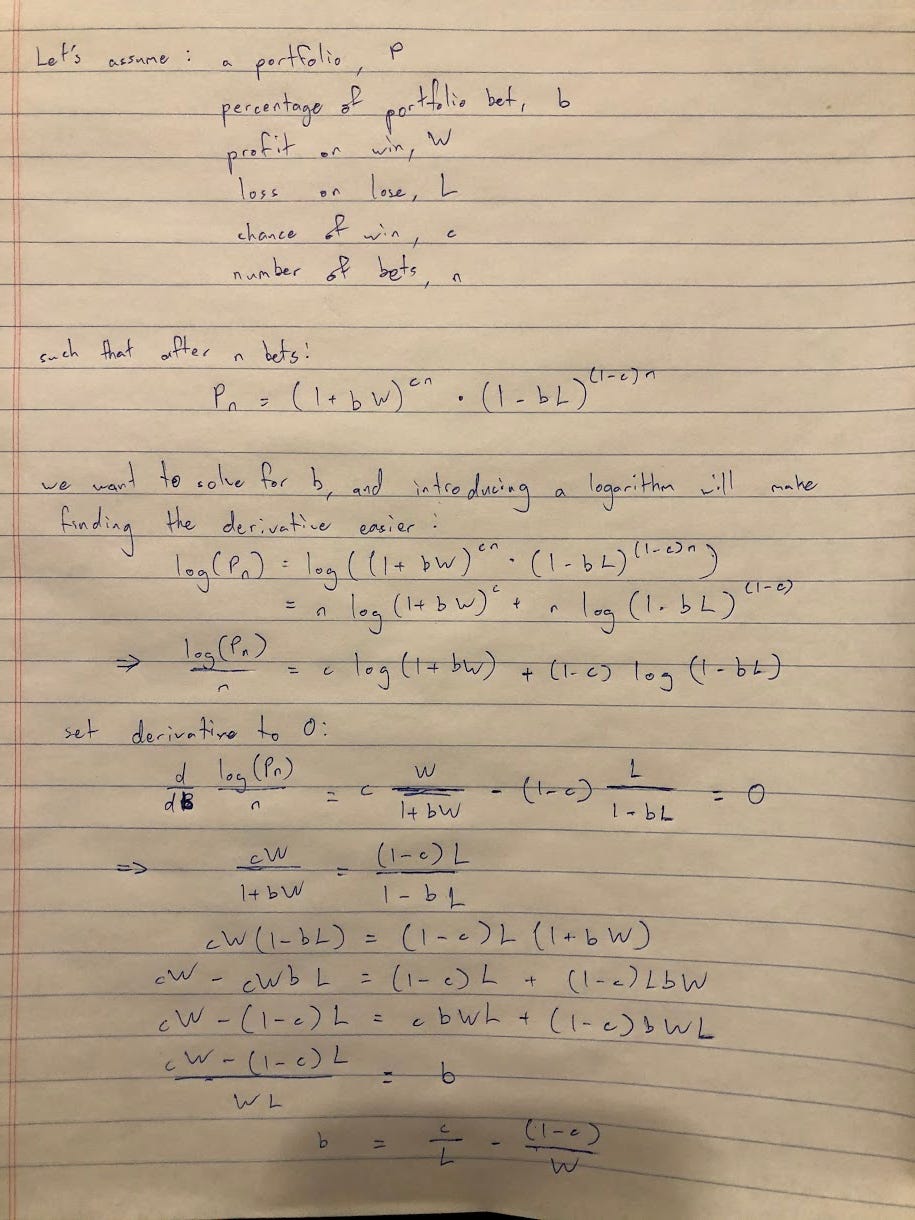 Let's assume : a portfolio, P
percentage of portfolio bet, b
profit on win, W
loss on lose, L
chance of win, c
number of bets, n
such that after n bets:
Pₙ = (1 + bW)^cn · (1 - bL)^(1-c)n
we want to solve for b, and introducing a logarithm will make
finding the derivative easier :
log(Pₙ) = log((1 + bW)^cn · (1 - bL)^(1-c)n)
= n log(1 + bW)^c + n log(1 - bL)^(1-c)
⇒ log(Pₙ)/n = c log(1 + bW) + (1-c) log(1 - bL)
set derivative to 0:
d/dB log(Pₙ)/n = c W/(1 + bW) - (1-c) L/(1 - bL) = 0
⇒ cW/(1 + bW) = (1-c)L/(1 - bL)
cW(1-bL) = (1-c)L(1+bW)
cW - cWbL = (1-c)L + (1-c)LbW
cW - (1-c)L = cbWL + (1-c)bWL
(cW - (1-c)L)/WL = b
b = c/L - (1-c)/W